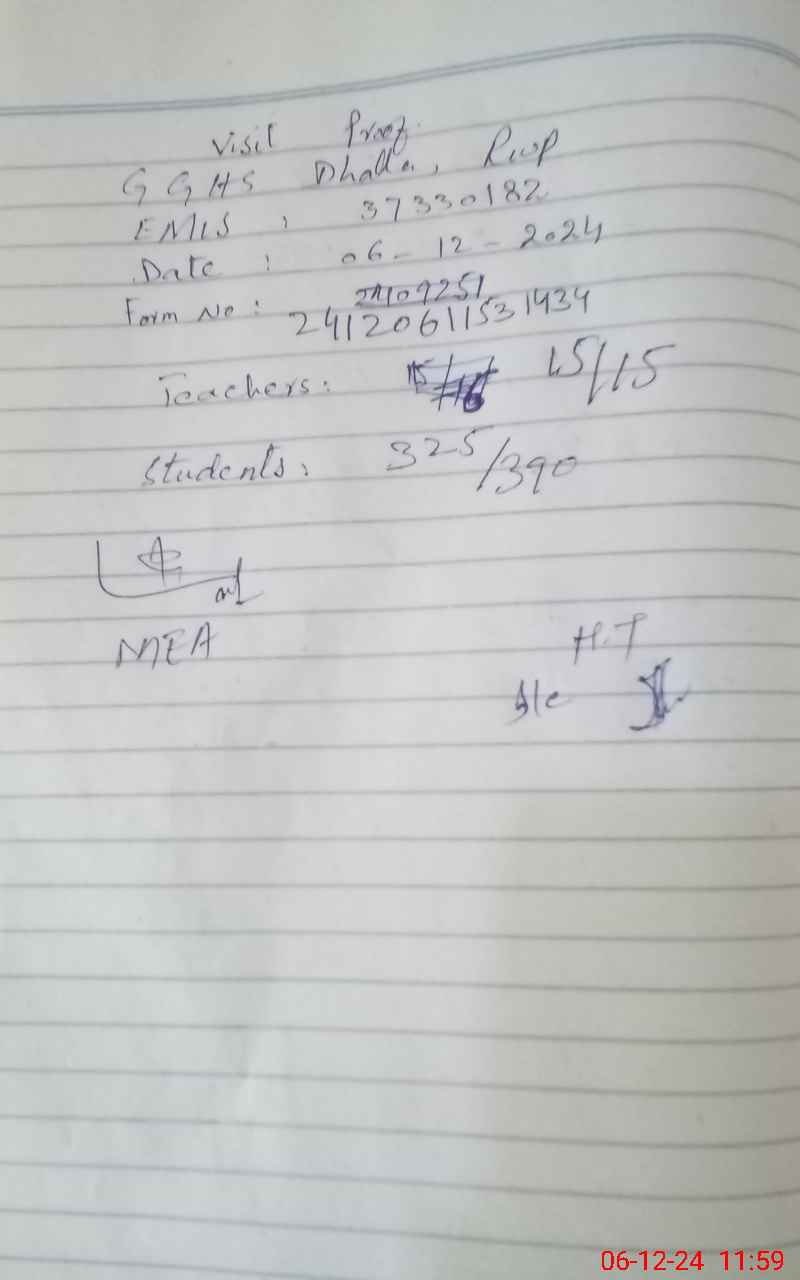 Visit Proof
GGHS Dhalla, Rwp
EMIS : 37330182
Date : 06-12-2024
Form No : 24109251
24120611531434
Teachers: 15/16 15/15
Students: 325/390
MEA
H.T
06-12-24 11:59